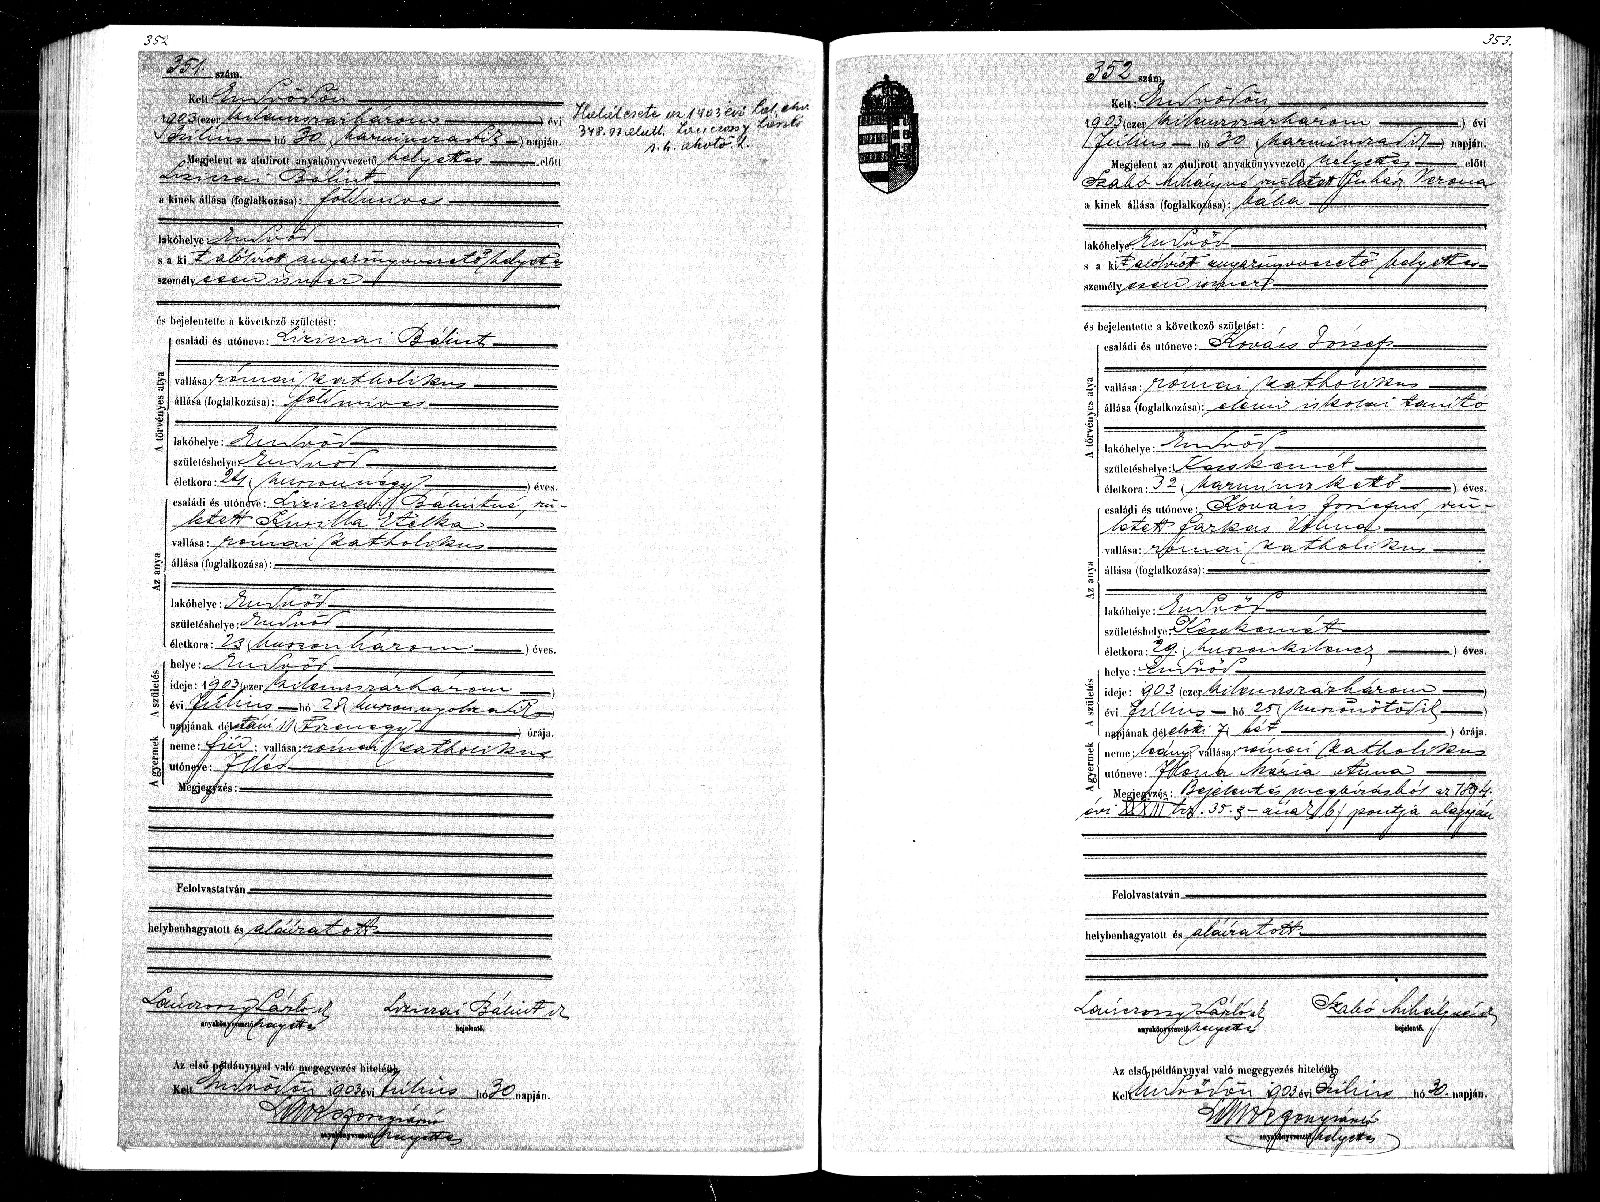 352
351. szám.
Kelt Endrődön
1903 (ezer kilencszázhárom) évi
Július hó 30 (harmincadik) napján.
Megjelent az alulirott anyakönyvvezető helyettes előtt
Lizinai Bálint
a kinek állása (foglalkozása): földmives
lakóhelye: Endrőd
s a kit alólirott anyakönyvvezető helyettes
személyesen ismer
és bejelentette a következő születést:
A törvényes atya
családi és utóneve: Bálint
vallása: római katholikus
állása (foglalkozása): földmives
lakóhelye: Endrőd
születéshelye: Endrőd
életkora: 24 (huszonnégy) éves.
Az anya
családi és utóneve: Bálintné, szü-
letett Etelka
vallása: római katholikus
állása (foglalkozása):
lakóhelye: Endrőd
születéshelye: Endrőd
életkora: 23 (huszonhárom) éves.
A születés
helye: Endrőd
ideje: 1903 (ezer kilencszázhárom)
évi Július hó 28 (huszonnyolcadik)
napjának dél utáni 11 (tizenegy) órája.
A gyermek
neme: fiú; vallása: római katholikus
utóneve: Illés
Megjegyzés:
Felolvastatván
helybenhagyatott és aláiratott
Lancrossy László
anyakönyvvezető helyettes
Bálint
bejelentő.
Az első példánynyal való megegyezés hiteléül.
Kelt Endrődön 1903 évi Július hó 30 napján.
anyakönyvvezető helyettes
Halálesete az 1903 évi hal. akv.
348. alatt. László
353.
352 szám.
Kelt: Endrődön
1903 (ezer kilencszázhárom) évi
Július hó 30 (harmincadik) napján.
Megjelent az alulirott anyakönyvvezető helyettes előtt
Szabó Mihályné született Verona
a kinek állása (foglalkozása): bába
lakóhelye: Endrőd
s a kit alólirott anyakönyvvezető helyettes
személyesen ismer
és bejelentette a következő születést:
A törvényes atya
családi és utóneve: Kovács József
vallása: római katholikus
állása (foglalkozása): elemi iskolai tanító
lakóhelye: Endrőd
születéshelye: Kecskemét
életkora: 32 (harminckettő) éves.
Az anya
családi és utóneve: Kovács Józsefné, szü-
letett Farkas Vilma
vallása: római katholikus
állása (foglalkozása):
lakóhelye: Endrőd
születéshelye: Kecskemét
életkora: 29 (huszonkilencz) éves.
A születés
helye: Endrőd
ideje: 903 (ezer kilencszázhárom)
évi Július hó 25 (huszonötödik)
napjának dél előtti 7 (hét) órája.
A gyermek
neme: leány; vallása: római katholikus
utóneve: Ilona Mária Anna
Megjegyzés: Bejelentés megbizásból az 1894.
évi XXXIII tcz. 35. §-ának b) pontja alapján
Felolvastatván
helybenhagyatott és aláiratott
Lancrossy László
anyakönyvvezető helyettes
Szabó Mihályné
bejelentő.
Az első példánynyal való megegyezés hiteléül.
Kelt Endrődön 1903 évi Július hó 30. napján.
anyakönyvvezető helyettes